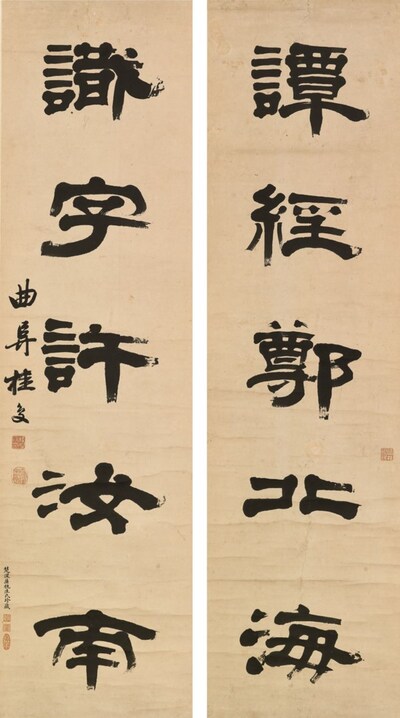 譚經鄭北海
識字許汝南
曲阜桂